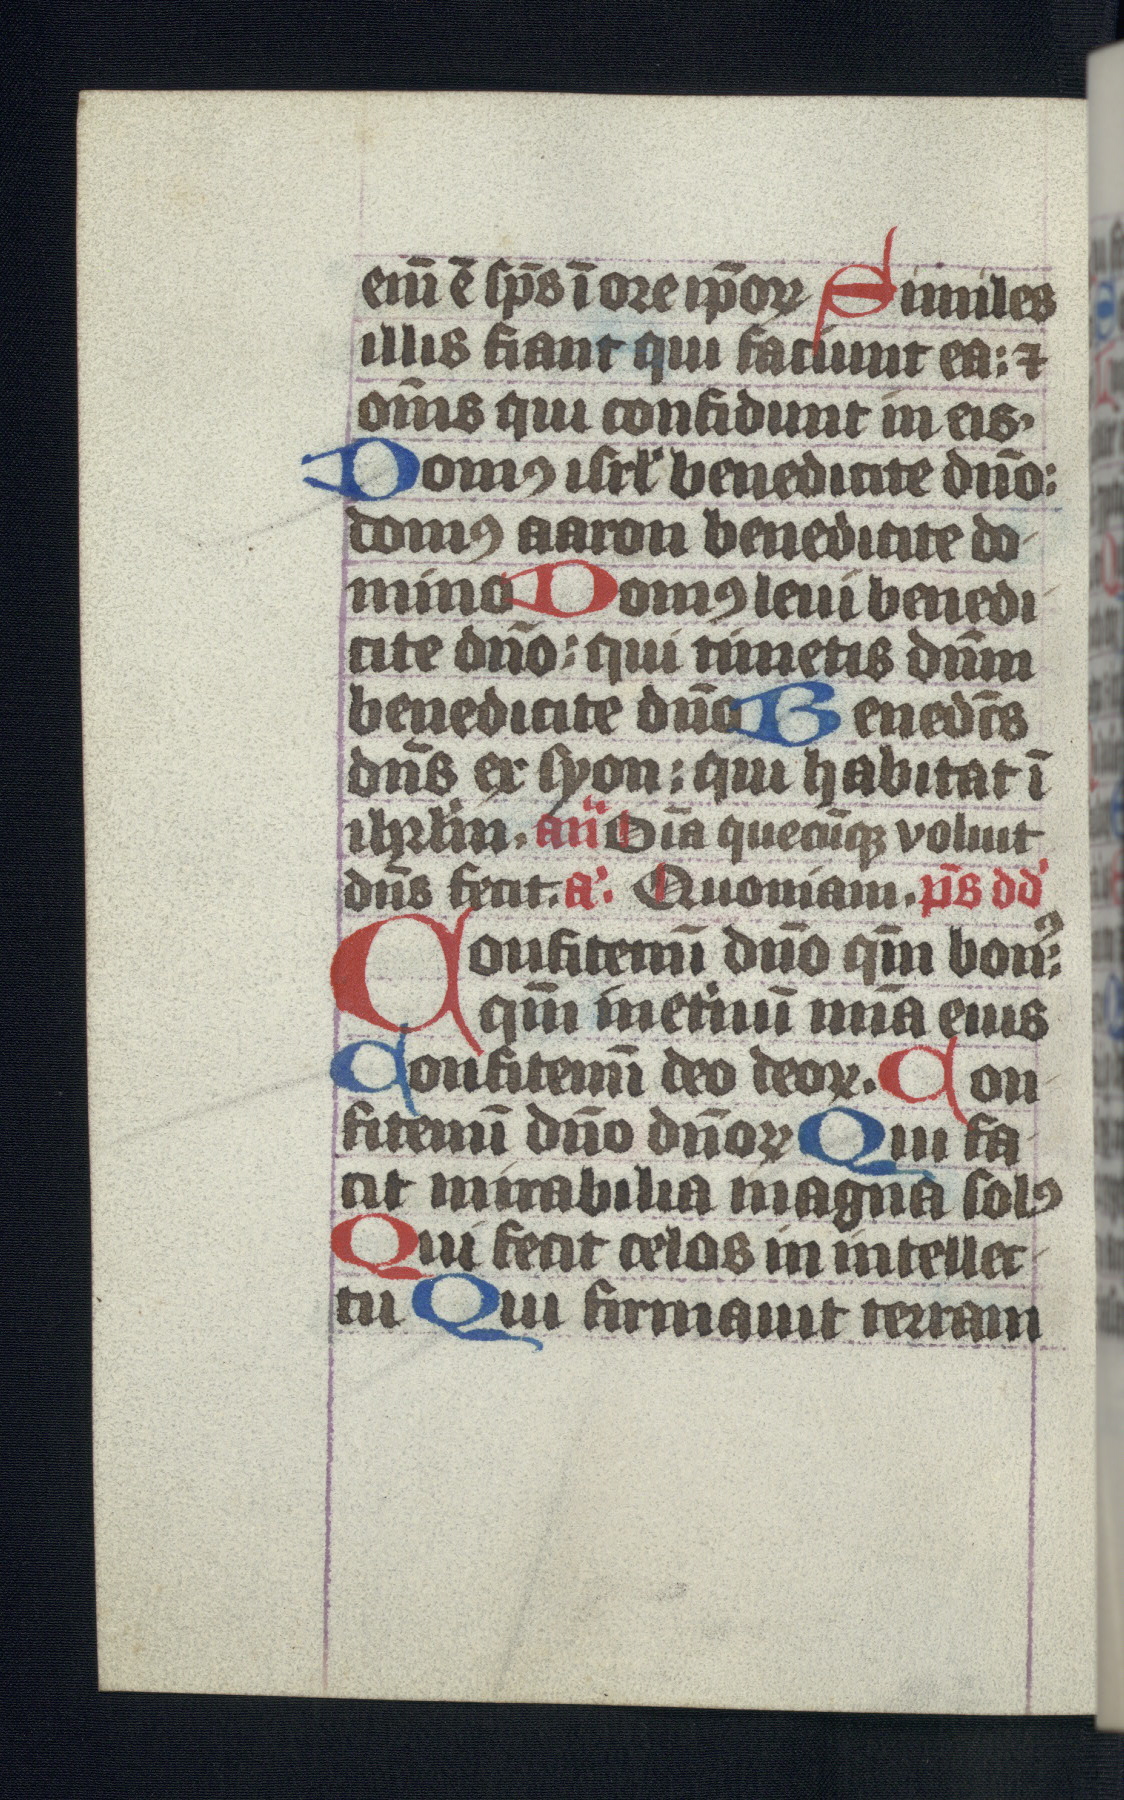 eni̅ e̅ sp̅s i̅ ore ip̅oꝝ Similes
illis fiant qui faciunt ea: ⁊
om̅s qui confidunt in eis.
Domꝰ isrl' benedicite dn̅o:
domꝰ aaron benedicite do
mino Domꝰ leui benedi
cite dn̅o: qui timetis dn̅m
benedicite dn̅o Benedc̅s
dn̅s ex syon: qui habitat i̅
ihrl'm. an̅ Oi̅a quecu̅qꝫ voluit
dn̅s fecit. a'. Quoniam. ps̅ dd'
Confitemi̅ dn̅o qm̅ bonꝰ:
qm̅ in et'nu̅ mi̅a eius
Confitemi̅ deo deoꝝ. Con
fitemi̅ dn̅o dn̅oꝝ Qui fa
cit mirabilia magna solꝰ
Qui fecit celos in intellec
tu Qui firmauit terram